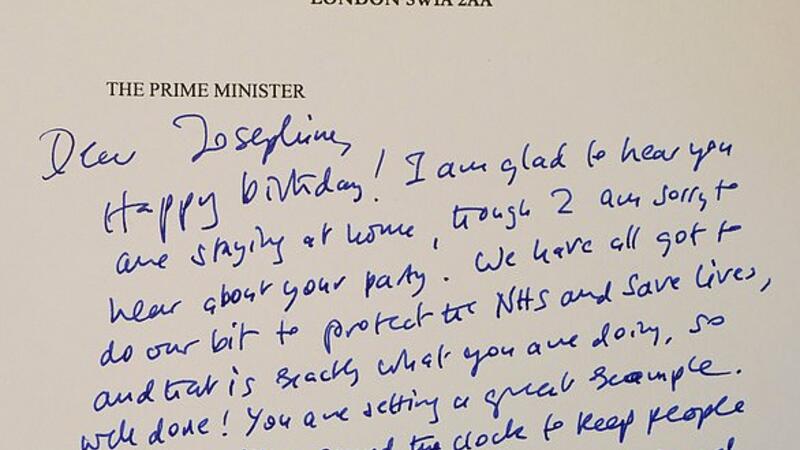 LONDON SW1A 2AA
THE PRIME MINISTER
Dear Josephine,
Happy birthday! I am glad to hear you
are staying at home, though I am sorry to
hear about your party. We have all got to
do our bit to protect the NHS and save lives,
and that is exactly what you are doing, so
well done! You are setting a great example.
the clock to keep people